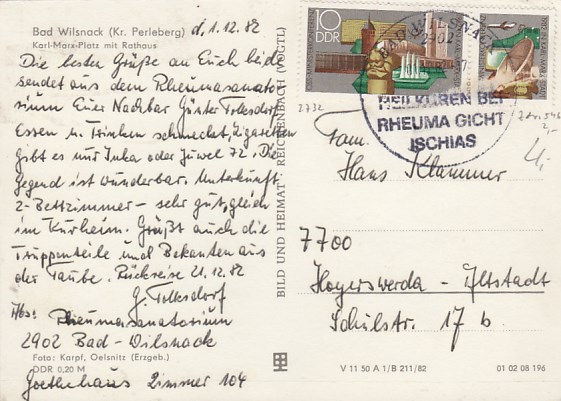 Bad Wilsnack (Kr. Perleberg) d. 1.12.82
Karl-Marx-Platz mit Rathaus
Die besten Grüße an Euch beide
sendet aus dem Rheumasanato-
rium Euer Nachbar Günter Folksdorf
Essen u. Trinken schmeckt, Zigaretten
gibt es nur Juka oder Juwel 72. Die
Gegend ist wunderbar. Unterkunft
2-Bettzimmer - sehr gut, gleich
im Kurheim. Grüßt auch die
Truppenteile und Bekannten aus
der Taube. Rückreise 21.12.82
G. Folksdorf
Abs: Rheumasanatorium
2902 Bad-Wilsnack
Foto: Karpf, Oelsnitz (Erzgeb.)
DDR 0,20 M
Goethehaus Zimmer 104
BILD UND HEIMAT · REICHENBACH (VOGTL)
10
DDR
BAD WILSNACK
HEILKUREN BEI
RHEUMA GICHT
ISCHIAS
2732
Fam.
Hans Klammer
7700
Hoyerswerda - Altstadt
Schulstr. 17 b
V 11 50 A 1/B 211/82
01 02 08 196